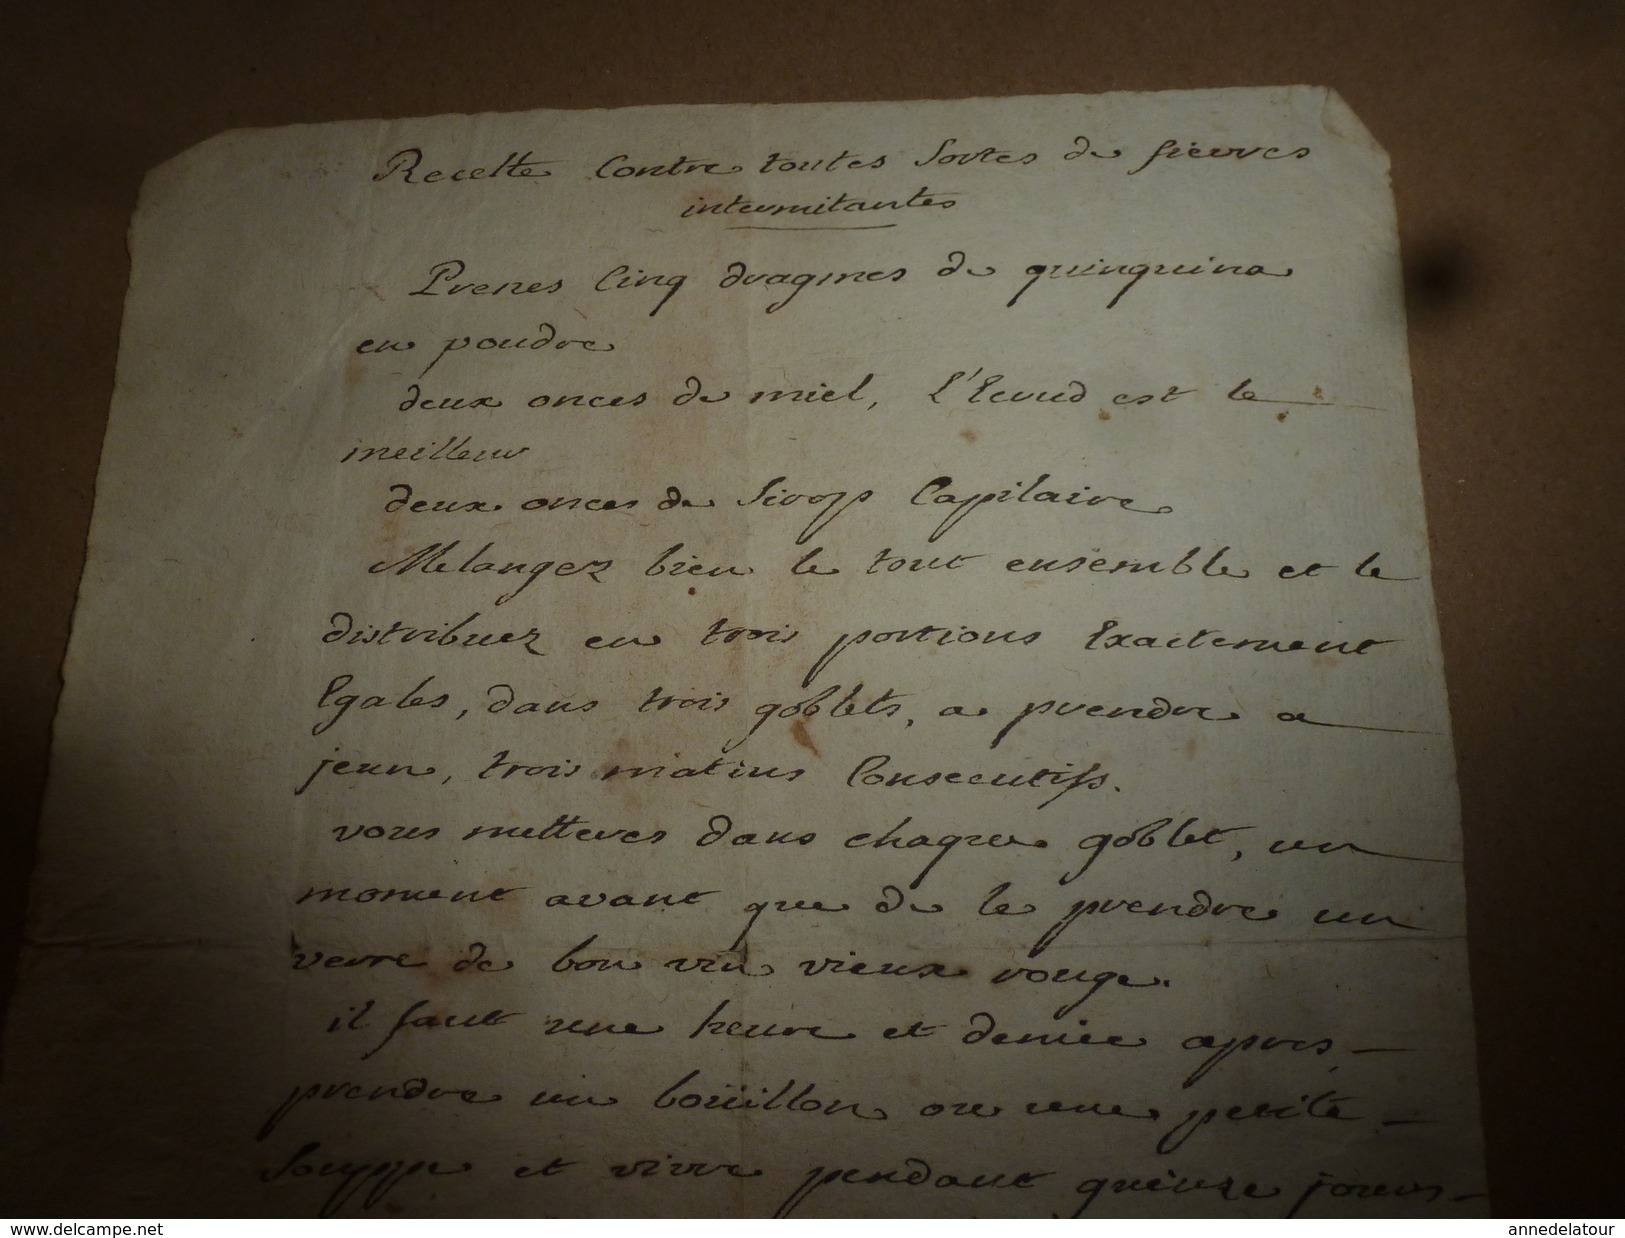 Recette Contre toutes Sortes de fieuvres
intermitantes
Prenes Cinq dragmes de quinquina
en poudre
deux onces de miel, l'Ecrud est le
meilleur
deux onces de Sirop Capilaire
Melangez bien le tout ensemble et le
distribuez en trois portions Exactement
Egales, dans trois goblets, a prendre a
jeun, trois matins Consecutifs.
vous metteres dans chaque goblet, un
moment avant que de le prendre un
verre de bon vin vieux rouge.
il faut une heure et demiee apres
prendre un boüillon ou une petite
Souppe et vivre pendant quinze jours
delcampe.com
annedelatour